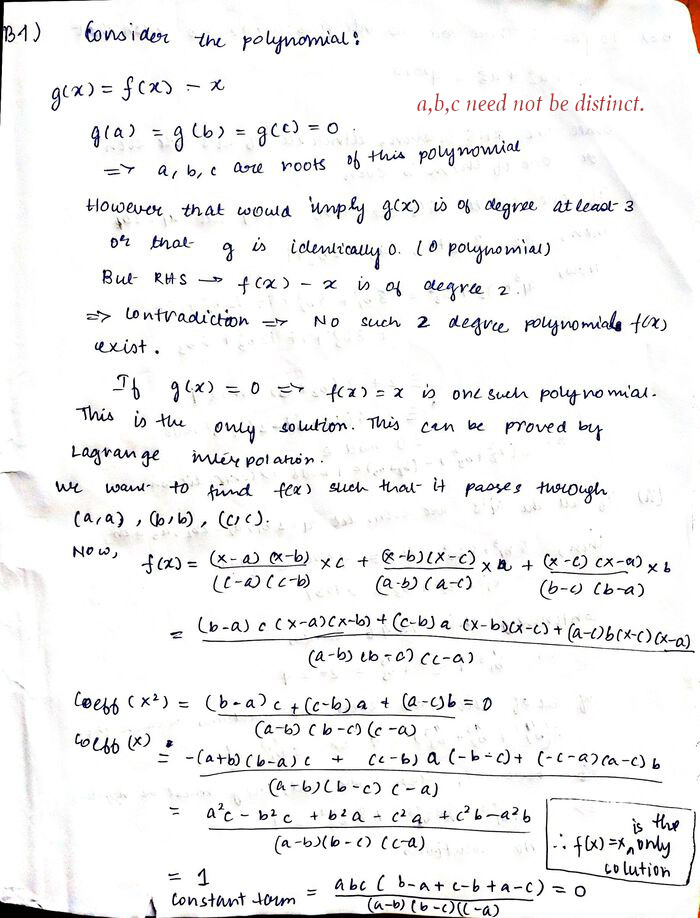 B1) Consider the polynomial:
g(x) = f(x) - x
a,b,c need not be distinct.
g(a) = g(b) = g(c) = 0.
=> a, b, c are roots of this polynomial
However, that would imply g(x) is of degree at least 3
or that g is identically 0. (0 polynomial)
But RHS → f(x) - x is of degree 2.
=> Contradiction => No such 2 degree polynomial f(x)
exist.
If g(x) = 0 => f(x) = x is one such polynomial.
This is the only solution. This can be proved by
Lagrange interpolation.
We want to find f(x) such that it passes through
(a,a), (b,b), (c,c).
Now, f(x) = (x-a)(x-b)/((c-a)(c-b)) × c + (x-b)(x-c)/((a-b)(a-c)) × a + (x-c)(x-a)/((b-c)(b-a)) × b
= ((b-a) c (x-a)(x-b) + (c-b) a (x-b)(x-c) + (a-c) b (x-c)(x-a))/((a-b)(b-c)(c-a))
Coeff (x²) = ((b-a)c + (c-b)a + (a-c)b)/((a-b)(b-c)(c-a)) = 0
Coeff (x) :
= (-(a+b)(b-a)c + (c-b) a (-b-c) + (-c-a)(a-c) b)/((a-b)(b-c)(c-a))
= (a²c - b²c + b²a - c²a + c²b - a²b)/((a-b)(b-c)(c-a))
∴ f(x) = x is the only
solution
= 1
constant term = abc (b-a+c-b+a-c)/((a-b)(b-c)(c-a)) = 0